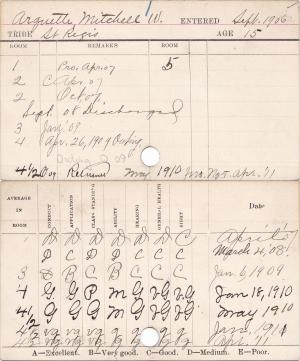 Arquette, Mitchell W. ENTERED Sept. 1906
TRIBE St Regis AGE 15
ROOM REMARKS ROOM
1 Pro. Apr. 07 5
2 C. Apr. 07
2 Oct. 07
Sept. 08 Discharged
3 Jan. '09
4 Apr. 26, 1909
4½ Retained May 1910 Apr. '11
AVERAGE IN ROOM CONDUCT APPLICATION CLASS STANDING ABILITY HEARING GENERAL HEALTH SIGHT Date
1 D D D D D D C April '07
D C D D D D C March 4, '08
3 D B C B C C C Jan. 6, 1909
4 G. G. P M G V.G. V.G. Jan 18, 1910
4½ G G G G G VG VG May 1910
4½ vg vg g g vg vg vg Jan. 1911
4½ vg vg g g vg vg vg Apr. '11
A—Excellent. B—Very good. C—Good. D—Medium. E—Poor.